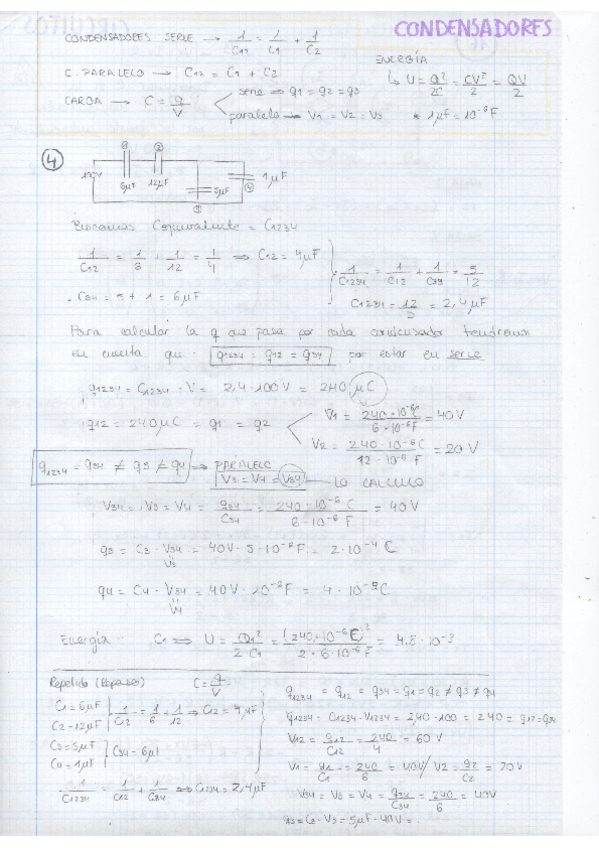 CONDENSADORES
CONDENSADORES SERIE → 1/C12 = 1/C1 + 1/C2
C. PARALELO → C12 = C1 + C2
CARGA → C = q/V
serie ⇒ q1 = q2 = q3
paralelo → V1 = V2 = V3
ENERGÍA
↳ U = Q²/2C = CV²/2 = QV/2
* 1μF = 10⁻⁶ F
④
100V
① 6μF
② 12μF
③ 5μF
④ 1μF
Buscamos Cequivalente = C1234
1/C12 = 1/6 + 1/12 = 1/4 ⇒ C12 = 4μF
. C34 = 5 + 1 = 6μF
1/C1234 = 1/C12 + 1/C34 = 5/12
C1234 = 12/5 = 2,4μF
Para calcular la q que pasa por cada condensador tendremos
en cuenta que: q1234 = q12 = q34 por estar en serie
q1234 = C1234 · V = 2,4 · 100V = 240 μC
q12 = 240μC = q1 = q2
V1 = 240·10⁻⁶C/6·10⁻⁶F = 40V
V2 = 240·10⁻⁶C/12·10⁻⁶F = 20V
q1234 = q34 ≠ q3 ≠ q4 → PARALELO
V3 = V4 = V34 → LO CALCULO
V34 = V3 = V4 = q34/C34 = 240·10⁻⁶ C/6·10⁻⁶ F = 40V
q3 = C3 · V34 = 40V · 5·10⁻⁶F = 2·10⁻⁴ C
V3
q4 = C4 · V34 = 40V · 10⁻⁶F = 4·10⁻⁵C
V4
Energía: C1 ⇒ U = Q1²/2C1 = (240·10⁻⁶C)²/2·6·10⁻⁶F = 4.8·10⁻³
Repetido (Repaso) C = q/V
C1 = 6μF
C2 = 12μF
1/C12 = 1/6 + 1/12 ⇒ C12 = 4μF
C3 = 5μF
C4 = 1μF
C34 = 6μF
1/C1234 = 1/C12 + 1/C34 ⇒ C1234 = 2,4μF
q1234 = q12 = q34 = q1 = q2 ≠ q3 ≠ q4
q1234 = C1234 · V1234 = 2,40 · 100 = 240 = q12 = q34
V12 = q12/C12 = 240/4 = 60V
V1 = q1/C1 = 240/6 = 40V / V2 = q2/C2 = 20V
V34 = V3 = V4 = q34/C34 = 240/6 = 40V
q3 = C3 · V3 = 5μF · 40V =